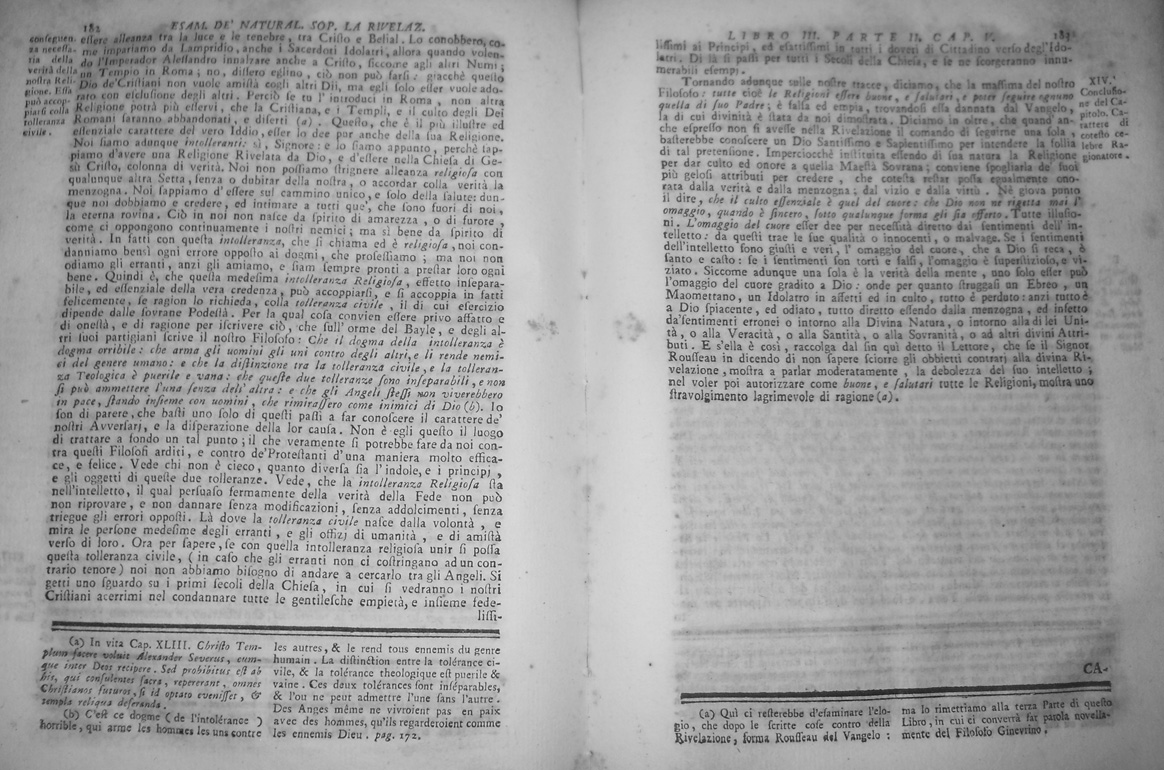 182 ESAM. DE' NATURAL. SOP. LA RIVELAZ.
conseguen-
za necessa-
ria della
verità della
nostra Reli-
gione. Essa
può accop-
piarsi colla
tolleranza
civile.
essere alleanza tra la luce e le tenebre, tra Cristo e Belial. Lo conobbero, co-
me impariamo da Lampridio, anche i Sacerdoti Idolatri, allora quando volen-
do l'Imperador Alessandro innalzare anche a Cristo, siccome agli altri Numi,
un Tempio in Roma; no, dissero eglino, ciò non può farsi: giacchè questo
Dio de' Cristiani non vuole amistà cogli altri Dii, ma egli solo esser vuole ado-
rato con esclusione degli altri. Perciò se tu l'introduci in Roma, non altra
Religione potrà più esservi, che la Cristiana, e i Templi, e il culto degli Dei
Romani saranno abbandonati, e diserti (a). Questo, che è il più illustre ed
essenziale carattere del vero Iddio, esser lo dee pur anche della sua Religione.
Noi siamo adunque intolleranti: sì, Signore: e lo siamo appunto, perchè sap-
piamo d'avere una Religione Rivelata da Dio, e d'essere nella Chiesa di Ge-
sù Cristo, colonna di verità. Noi non possiamo strignere alleanza religiosa con
qualunque altra Setta, senza o dubitar della nostra, o accordar colla verità la
menzogna. Noi sappiamo d'essere sul cammino unico, e solo della salute: dun-
que noi dobbiamo e credere, ed intimare a tutti que', che sono fuori di noi,
la eterna rovina. Ciò in noi non nasce da spirito di amarezza, o di furore,
come ci oppongono continuamente i nostri nemici; ma sì bene da spirito di
verità. In fatti con questa intolleranza, che si chiama ed è religiosa, noi con-
danniamo bensì ogni errore opposto ai dogmi, che professiamo; ma noi non
odiamo gli erranti, anzi gli amiamo, e siam sempre pronti a prestar loro ogni
bene. Quindi è, che questa medesima intolleranza Religiosa, effetto insepara-
bile, ed essenziale della vera credenza, può accoppiarsi, e si accoppia in fatti
felicemente, se ragion lo richieda, colla tolleranza civile, il di cui esercizio
dipende dalle sovrane Podestà. Per la qual cosa convien essere privo affatto e
di onestà, e di ragione per iscrivere ciò, che sull'orme del Bayle, e degli al-
tri suoi partigiani scrive il nostro Filosofo: Che il dogma della intolleranza è
dogma orribile: che arma gli uomini gli uni contro degli altri, e li rende nemi-
ci del genere umano: e che la distinzione tra la tolleranza civile, e la tolleran-
za Teologica è puerile e vana: che queste due tolleranze sono inseparabili, e non
si può ammettere l'una senza dell'altra: e che gli Angeli stessi non viverebbero
in pace, stando insieme con uomini, che rimirassero come inimici di Dio (b). Io
son di parere, che basti uno solo di questi passi a far conoscere il carattere de'
nostri Avversarj, e la disperazione della lor causa. Non è egli questo il luogo
di trattare a fondo un tal punto; il che veramente si potrebbe fare da noi con-
tra questi Filosofi arditi, e contro de' Protestanti d'una maniera molto effica-
ce, e felice. Vede chi non è cieco, quanto diversa sia l'indole, e i principj,
e gli oggetti di queste due tolleranze. Vede, che la intolleranza Religiosa sta
nell'intelletto, il qual persuaso fermamente della verità della Fede non può
non riprovare, e non dannare senza modificazioni, senza addolcimenti, senza
triegue gli errori opposti. Là dove la tolleranza civile nasce dalla volontà, e
mira le persone medesime degli erranti, e gli offizj di umanità, e di amistà
verso di loro. Ora per sapere, se con quella intolleranza religiosa unir si possa
questa tolleranza civile, (in caso che gli erranti non ci costringano ad un con-
trario tenore) noi non abbiamo bisogno di andare a cercarlo tra gli Angeli. Si
getti uno sguardo su i primi secoli della Chiesa, in cui si vedranno i nostri
Cristiani acerrimi nel condannare tutte le gentilesche empietà, e insieme fede-
lissi-
(a) In vita Cap. XLIII. Christo Tem-
plum facere voluit Alexander Severus, eum-
que inter Deos recipere. Sed prohibitus est ab
his, qui consulentes sacra, repererant, omnes
Christianos futuros, si id optato evenisset, &
templa reliqua deserenda.
(b) C'est ce dogme (de l'intolérance)
horrible, qui arme les hommes les uns contre
les autres, & le rend tous ennemis du genre
humain. La distinction entre la tolérance ci-
vile, & la tolérance theologique est puerile &
vaine. Ces deux tolérances sont inséparables,
& l'ou ne peut admettre l'une sans l'autre.
Des Anges même ne vivroient pas en paix
avec des hommes, qu'ils regarderoient comme
les ennemis Dieu. pag. 172.
LIBRO III. PARTE II. CAP. V. 183
lissimi ai Principi, ed esattissimi in tutti i doveri di Cittadino verso degl'Ido-
latri. Di là si passi per tutti i Secoli della Chiesa, e se ne scorgeranno innu-
merabili esempj.
Tornando adunque sulle nostre tracce, diciamo, che la massima del nostro
Filosofo: tutte cioè le Religioni essere buone, e salutari, e poter seguire ognuno
quella di suo Padre; è falsa ed empia, trovandosi essa dannata dal Vangelo,
la di cui divinità è stata da noi dimostrata. Diciamo in oltre, che quand'an-
che espresso non si avesse nella Rivelazione il comando di seguirne una sola,
basterebbe conoscere un Dio Santissimo e Sapientissimo per intendere la follia
di tal pretensione. Imperciocchè instituita essendo di sua natura la Religione
per dar culto ed onore a quella Maestà Sovrana; conviene spogliarla de' suoi
più gelosi attributi per credere, che cotesta restar possa egualmente ono-
rata dalla verità e dalla menzogna; dal vizio e dalla virtù. Nè giova punto
il dire, che il culto essenziale è quel del cuore: che Dio non ne rigetta mai l'
omaggio, quando è sincero, sotto qualunque forma gli sia offerto. Tutte illusio-
ni. L'omaggio del cuore esser dee per necessità diretto dai sentimenti dell'in-
telletto: da questi trae le sue qualità o innocenti, o malvage. Se i sentimenti
dell'intelletto sono giusti e veri, l'omaggio del cuore, che a Dio si reca, è
santo e casto: se i sentimenti son torti e falsi, l'omaggio è superstizioso, e vi-
ziato. Siccome adunque una sola è la verità della mente, uno solo esser può
l'omaggio del cuore gradito a Dio: onde per quanto struggasi un Ebreo, un
Maomettano, un Idolatro in affetti ed in culto, tutto è perduto: anzi tutto è
a Dio spiacente, ed odiato, tutto diretto essendo dalla menzogna, ed infetto
da' sentimenti erronei o intorno alla Divina Natura, o intorno alla di lei Uni-
tà, o alla Veracità, o alla Santità, o alla Sovranità, o ad altri divini Attri-
buti. E s'ella è così, raccolga dal sin quì detto il Lettore, che se il Signor
Rousseau in dicendo di non sapere sciorre gli obbietti contrarj alla divina Ri-
velazione, mostra a parlar moderatamente, la debolezza del suo intelletto;
nel voler poi autorizzare come buone, e salutari tutte le Religioni, mostra uno
stravolgimento lagrimevole di ragione (a).
XIV.
Conclusio-
ne del Ca-
pitolo. Ca-
rattere di
cotesto ce-
lebre Ra-
gionatore.
CA-
(a) Quì ci resterebbe d'esaminare l'elo-
gio, che dopo le scritte cose contro della
Rivelazione, forma Rousseau del Vangelo:
ma lo rimettiamo alla terza Parte di questo
Libro, in cui ci converrà far parola novella-
mente del Filosofo Ginevrino.